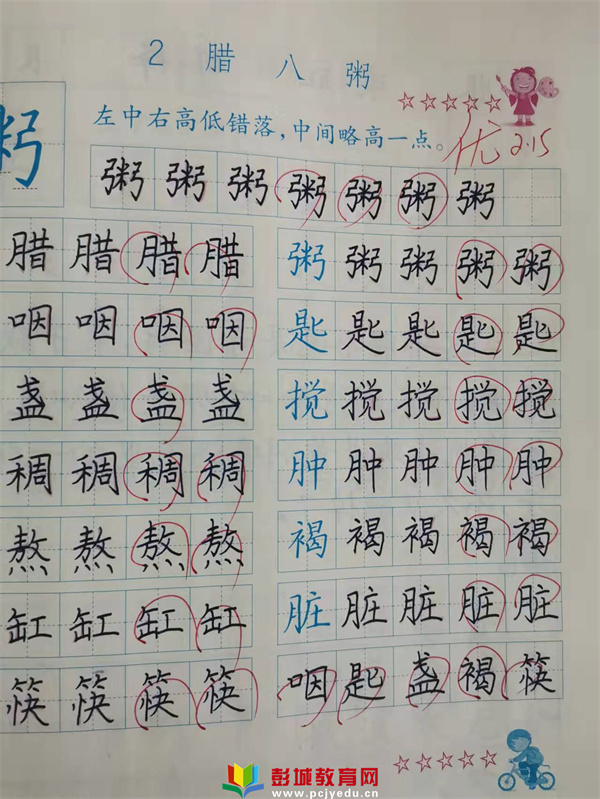 2 腊八粥
左中右高低错落，中间略高一点。
优 2.15
粥
粥 粥 粥 粥 粥 粥 粥
腊 腊 腊 腊
粥 粥 粥 粥 粥
咽 咽 咽 咽
匙 匙 匙 匙 匙
盏 盏 盏 盏
搅 搅 搅 搅 搅
稠 稠 稠 稠
肿 肿 肿 肿 肿
熬 熬 熬 熬
褐 褐 褐 褐 褐
缸 缸 缸 缸
脏 脏 脏 脏 脏
筷 筷 筷 筷
咽 匙 盏 褐 筷
彭城教育网
www.pcjyedu.cn